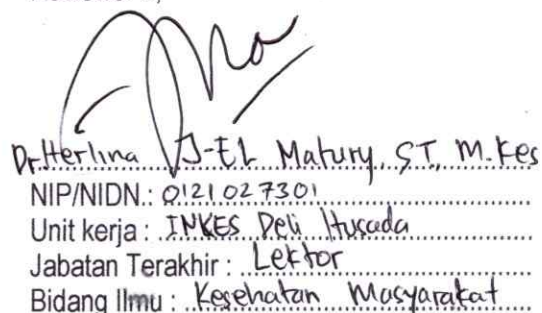 Dr. Herlina J-EL Matury, ST, M.Kes
NIP/NIDN.: 0121027301
Unit kerja : INKES Deli Husada
Jabatan Terakhir : Lektor
Bidang Ilmu : Kesehatan Masyarakat